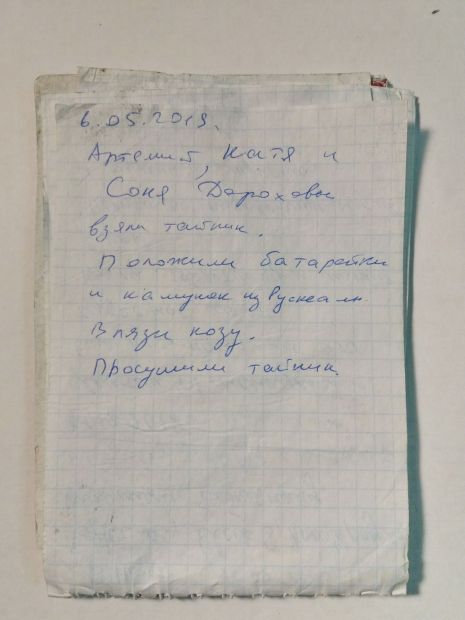 6.05.2019.
Артемий, Катя и
Соня Дороховы
взяли тайник.
Положили батарейки
и камушек из Рускеалы
Взяли козу.
Просушили тайник